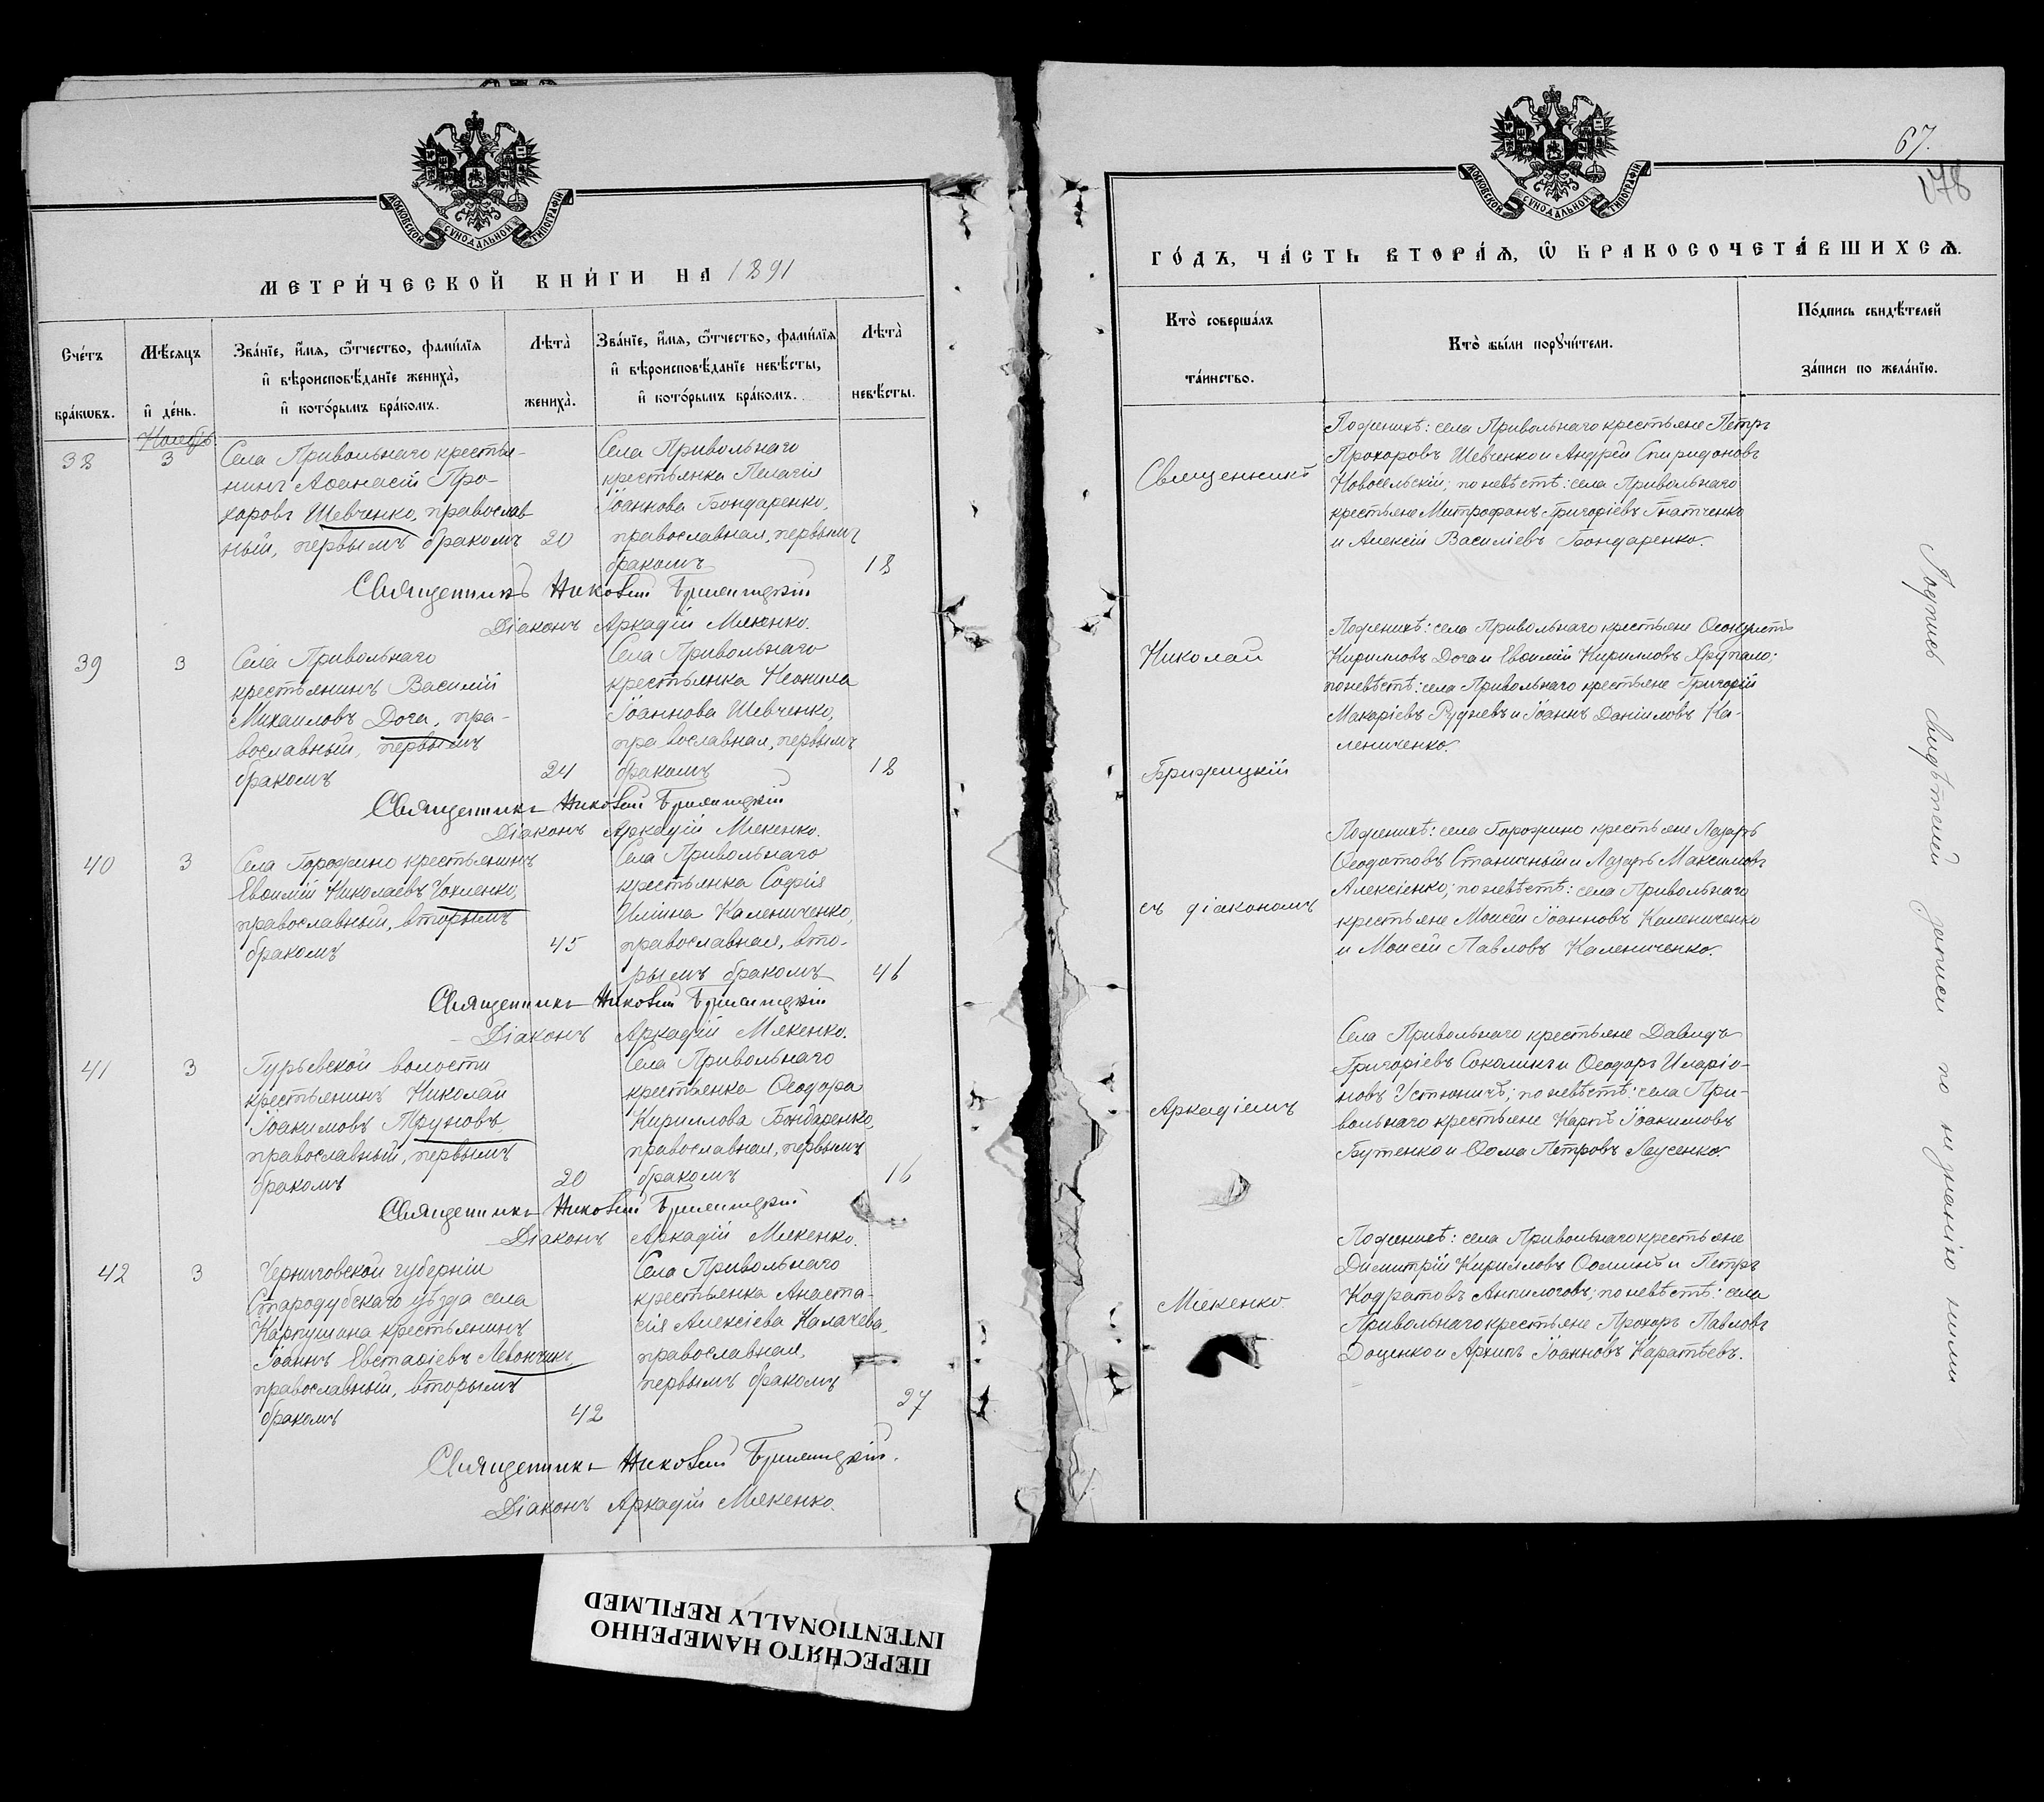 МОСКОВСКОЙ СѴНОДАЛЬНОЙ ТИПОГРАФІИ
МЕТРИ́ЧЕСКОЙ КНИ́ГИ НА 1891
Сче́тъ
бра́кѡвъ.
Мѣ́сяцъ
и҆ де́нь.
Зва́нїе, и҆́мѧ, ѻ҆́тчество, фами́лїѧ
и҆ вѣроисповѣ́данїе жениха̀,
и҆ кото́рымъ бра́комъ.
Лѣта̀
жениха̀.
Зва́нїе, и҆́мѧ, ѻ҆́тчество, фами́лїѧ
и҆ вѣроисповѣ́данїе невѣ́сты,
и҆ кото́рымъ бра́комъ.
Лѣта̀
невѣ́сты.
Ноябрь
38
3
Села Привольнаго крестья-
нинъ Аѳанасій Про-
хоровъ Шевченко, православ
ный, первымъ бракомъ
20
Села Привольнаго
крестьянка Пелагія
Іоаннова Бондаренко,
православная, первымъ
бракомъ
18
Священникъ Николай Брижицкій
Діаконъ Аркадій Мякенко.
39
3
Села Привольнаго
крестьянинъ Василій
Михаиловъ Дога, пра-
вославный, первымъ
бракомъ
24
Села Привольнаго
крестьянка Неонила
Іоаннова Шевченко,
православная, первымъ
бракомъ
18
Священникъ Николай Брижицкій
Діаконъ Аркадій Мякенко.
40
3
Села Горожино крестьянинъ
Евѳимій Николаевъ Чохленко,
православный, вторымъ
бракомъ
45
Села Привольнаго
крестьянка Софія
Иліина Калениченко,
православная, вто-
рымъ бракомъ
46
Священникъ Николай Брижицкій
Діаконъ Аркадій Мякенко.
41
3
Гурьевской волости
крестьянинъ Николай
Іоакимовъ Труновъ,
православный, первымъ
бракомъ
20
Села Привольнаго
крестьянка Ѳеодора
Кириллова Бондаренко,
православная, первымъ
бракомъ
16
Священникъ Николай Брижицкій
Діаконъ Аркадій Мякенко.
42
3
Черниговской губерніи
Стародубскаго уѣзда села
Картушина крестьянинъ
Іоаннъ Евстафіевъ Левончикъ,
православный, вторымъ
бракомъ
42
Села Привольнаго
крестьянка Анаста-
сія Алексіева Калачева,
православная,
первымъ бракомъ
27
Священникъ Николай Брижицкій.
Діаконъ Аркадій Мякенко.
67.
178
МОСКОВСКОЙ СѴНОДАЛЬНОЙ ТИПОГРАФІИ
ГО́ДЪ, ЧА́СТЬ ВТОРА́Ѧ, Ѽ БРАКОСОЧЕТА́ВШИХСѦ.
Кто̀ соверша́лъ
та́инство.
Кто̀ бы́ли порꙋчи́тели.
По́дпись свидѣ́телей
за́писи по жела́нїю.
Священникъ
Николай
Брижицкій
съ діакономъ
Аркадіемъ
Мякенко.
По женихѣ: села Привольнаго крестьяне Петръ
Прохоровъ Шевченко и Андрей Спиридоновъ
Новосельскій; по невѣстѣ: села Привольнаго
крестьяне Митрофанъ Григоріевъ Гнатченко
и Алексій Василіевъ Бондаренко.
По женихѣ: села Привольнаго крестьяне Ѳеоктистъ
Кирилловъ Дога и Евѳимій Кирилловъ Хрупало;
по невѣстѣ: села Привольнаго крестьяне Григорій
Макаріевъ Рудневъ и Іоаннъ Даніиловъ Ка-
лениченко.
По женихѣ: села Горожино крестьяне Лазарь
Ѳеодотовъ Станичный и Лазарь Максимовъ
Алексіенко; по невѣстѣ: села Привольнаго
крестьяне Моисей Іоанновъ Калениченко
и Моисей Павловъ Калениченко.
Села Привольнаго крестьяне Давидъ
Григоріевъ Соколинъ и Ѳеодоръ Иларіо-
новъ Устюничъ; по невѣстѣ: села При-
вольнаго крестьяне Карпъ Іоакимовъ
Бутенко и Ѳома Петровъ Лаусенко.
По женихѣ: села Привольнаго крестьяне
Димитрій Кирилловъ Ѳоминъ и Петръ
Кодратовъ Анпилоговъ; по невѣстѣ: села
Привольнаго крестьяне Прохоръ Павловъ
Доценко и Архипъ Іоанновъ Каратѣевъ.
Подписей свидѣтелей записи по незнанію ними
ПЕРЕСНЯТО НАМЕРЕННО
INTENTIONALLY REFILMED